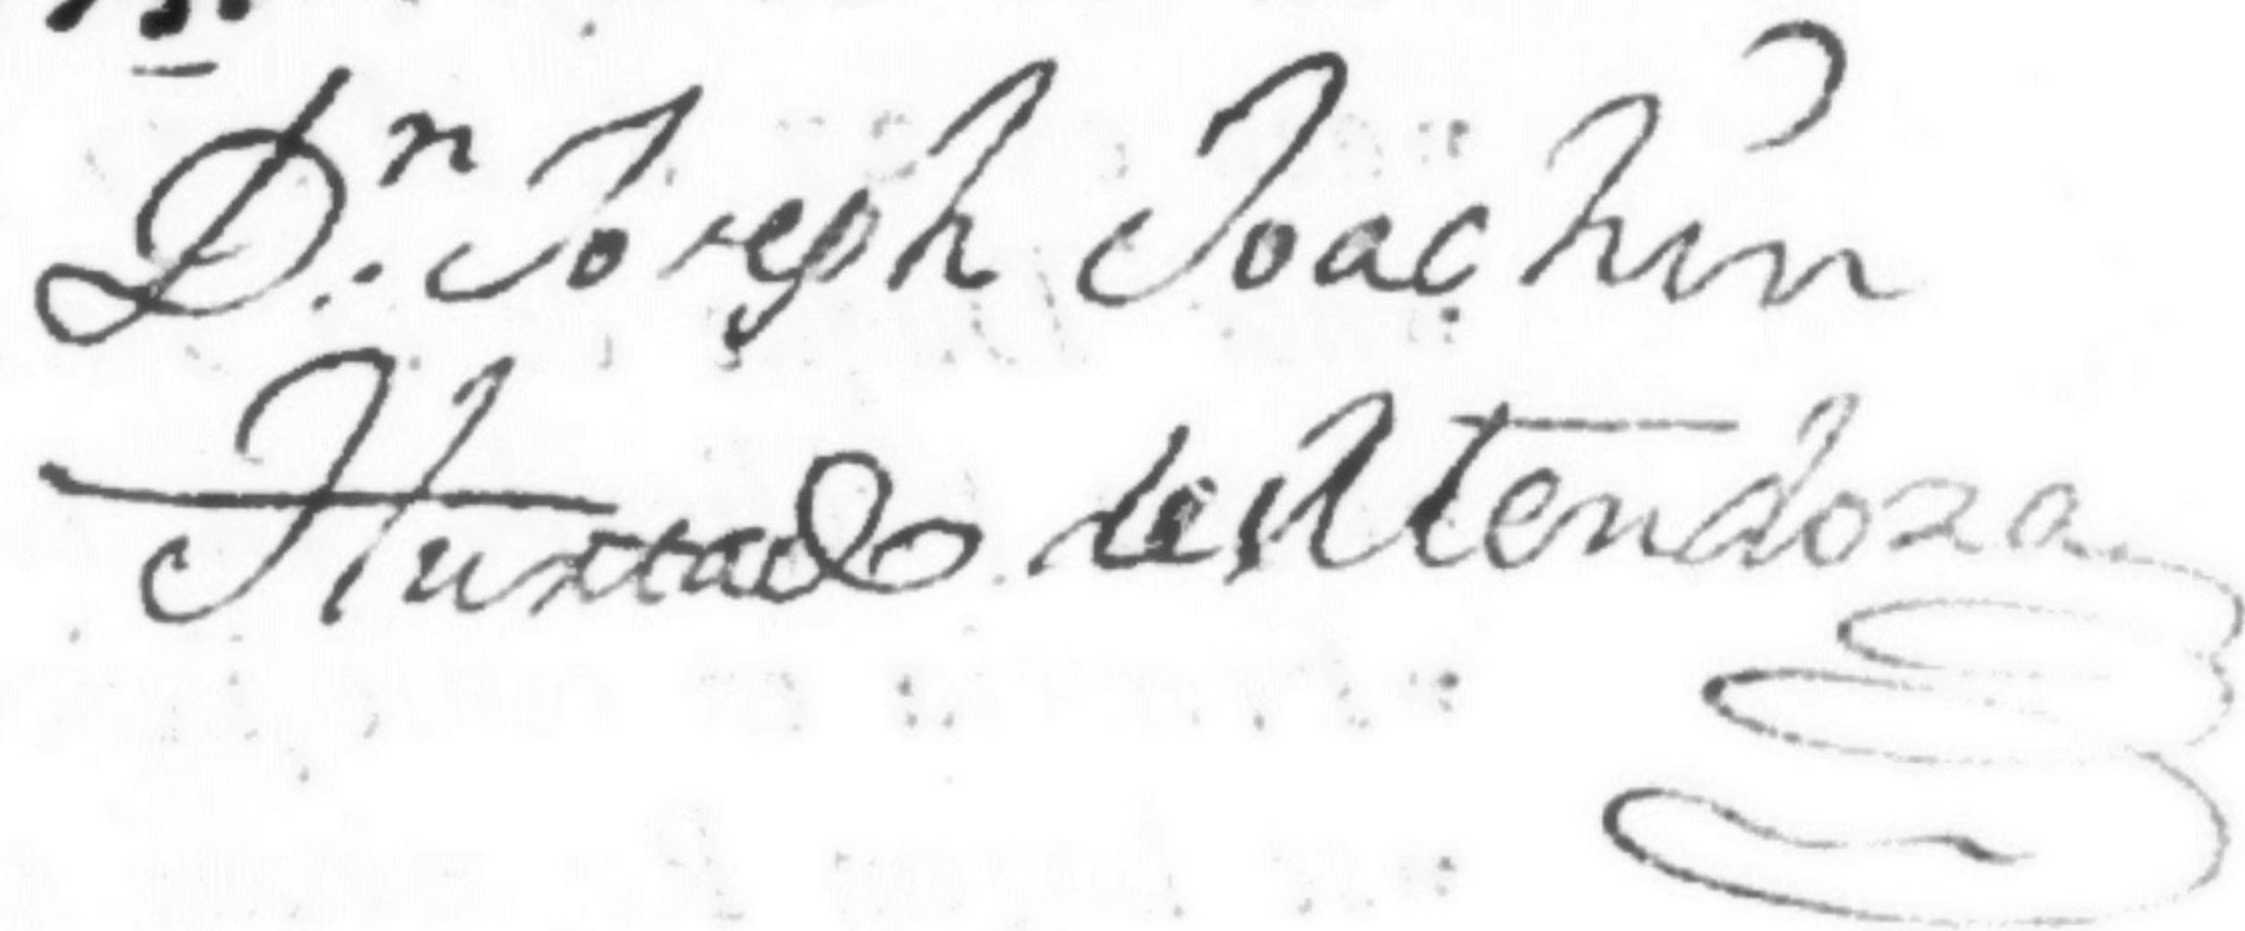 Dn. Joseph Joachin
Hurtado de Mendoza